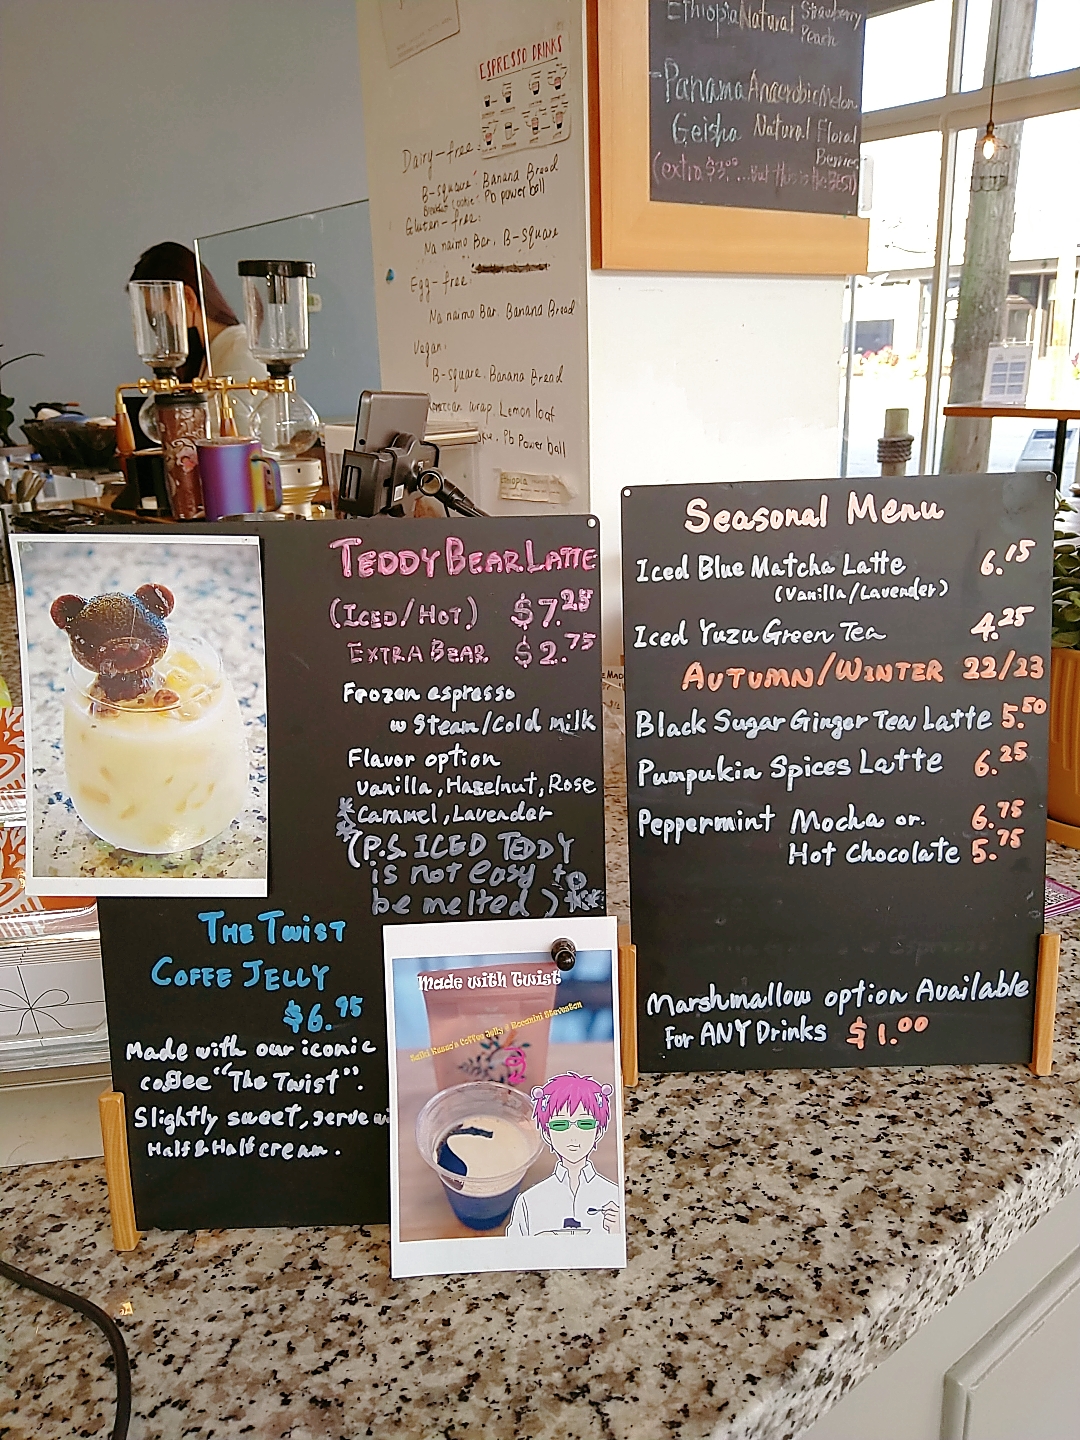 ESPRESSO DRINKS
Dairy-free:
B-square Banana Bread
Pb power ball
Gluten-free:
Nanaimo Bar, B-Square
Egg-free:
Nanaimo Bar. Banana Bread
Vegan:
B-square. Banana Bread
wrap Lemon loaf
Pb Power ball
Ethiopia
Ethiopia Natural Strawberry
Peach
Panama Anaerobic Melon
Geisha Natural Floral
Berries
(extra $3.00 ...but this is the BEST)
TEDDY BEAR LATTE
(ICED/HOT) $7.25
EXTRA BEAR $2.75
Frozen espresso
w Steam/Cold milk
Flavor option
Vanilla, Hazelnut, Rose
Caramel, Lavender
(P.S. ICED TEDDY
is not easy to
be melted)
THE TWIST
COFFE JELLY
$6.95
Made with our iconic
coffee "The Twist".
Slightly sweet, serve wi
Half & Half cream.
Made with Twist
Saiki Kusuo's Coffee Jelly @ Rocanini Steveston
Seasonal Menu
Iced Blue Matcha Latte 6.15
(Vanilla/Lavender)
Iced Yuzu Green Tea 4.25
AUTUMN/WINTER 22/23
Black Sugar Ginger Tea Latte 5.50
Pumpukin Spices Latte 6.25
Peppermint Mocha or. 6.75
Hot Chocolate 5.75
Marshmallow option Available
For ANY Drinks $1.00